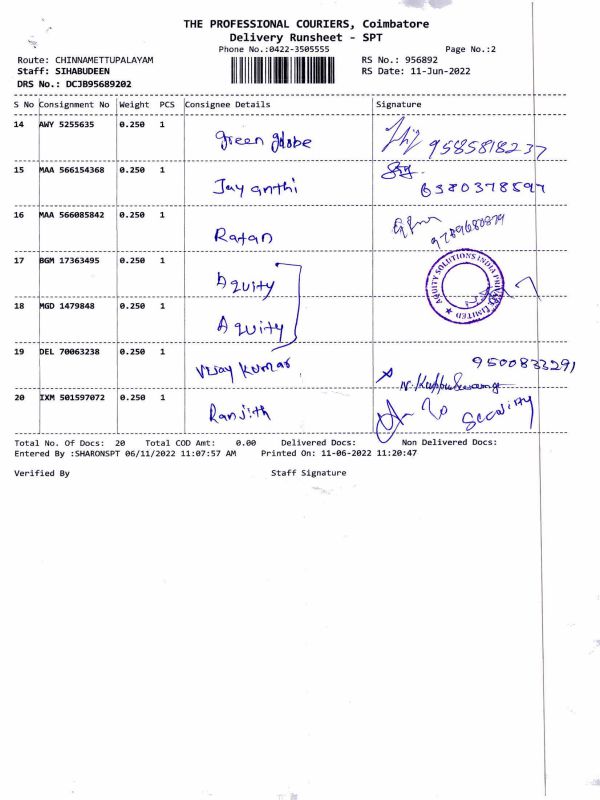 THE PROFESSIONAL COURIERS, Coimbatore
Delivery Runsheet - SPT
Phone No.:0422-3505555 Page No.:2
Route: CHINNAMETTUPALAYAM RS No.: 956892
Staff: SIHABUDEEN RS Date: 11-Jun-2022
DRS No.: DCJB95689202
S No Consignment No Weight PCS Consignee Details Signature
14 AWY 5255635 0.250 1 Green globe 9585818237
15 MAA 566154368 0.250 1 Jayanthi 6380378597
16 MAA 566085842 0.250 1 Ratan 9789680879
17 BGM 17363495 0.250 1 Aquity
AQUITY SOLUTIONS INDIA PRIVATE LIMITED
18 MGD 1479848 0.250 1 Aquity
19 DEL 70063238 0.250 1 Vijay Kumar 9500833291
20 IXM 501597072 0.250 1 Ranjith Security
Total No. Of Docs: 20 Total COD Amt: 0.00 Delivered Docs: Non Delivered Docs:
Entered By :SHARONSPT 06/11/2022 11:07:57 AM Printed On: 11-06-2022 11:20:47
Verified By Staff Signature